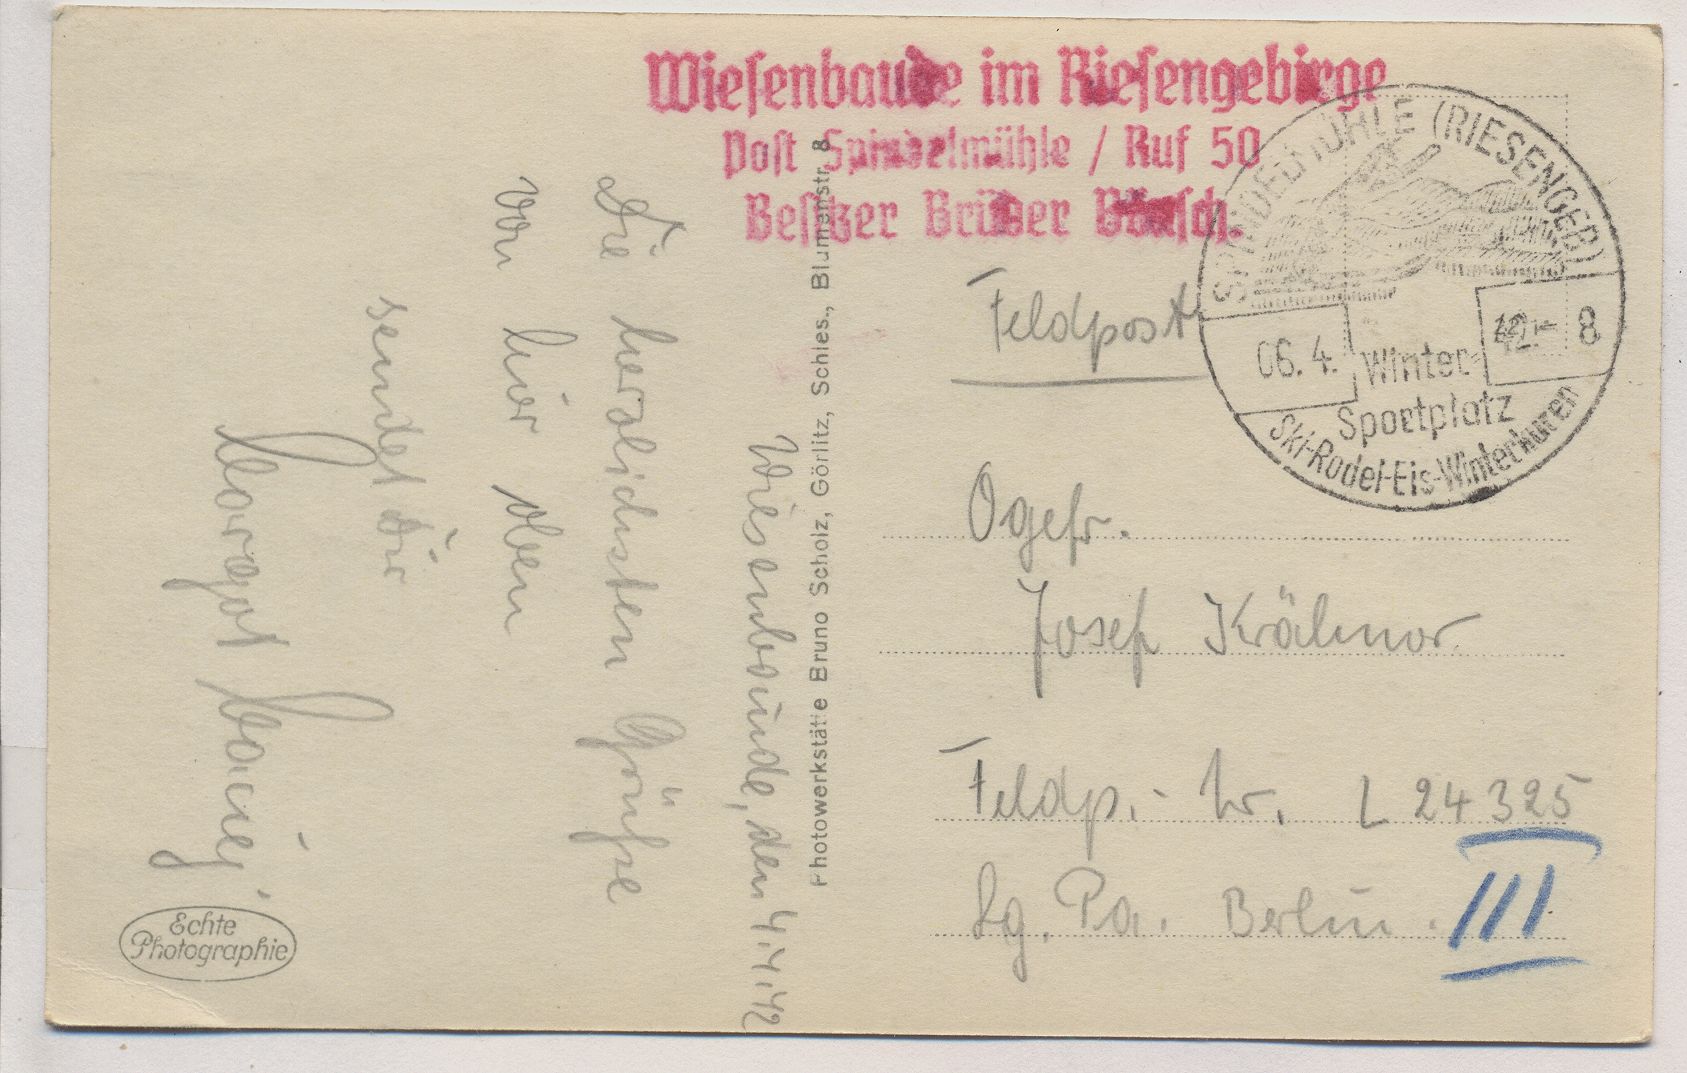 Wiesenbaude im Riesengebirge
Post Spindelmühle / Ruf 50
Besitzer Brüder Bönsch.
SPINDELMÜHLE (RIESENGEB)
06.4. 42 - 8
Winter-
Sportplatz
Ski-Rodel-Eis-Winterkuren
Feldpost
Ogefr.
Josef
Feldp.- Nr. L 24325
Lg. Pa. Berlin.
III
Photowerkstätte Bruno Scholz, Görlitz, Schles., Blumenstr. 8
Wiesenbaude, den 4.4.42
Die herzlichsten Grüße
von hier oben
sendet Dir
Margot
Echte
Photographie